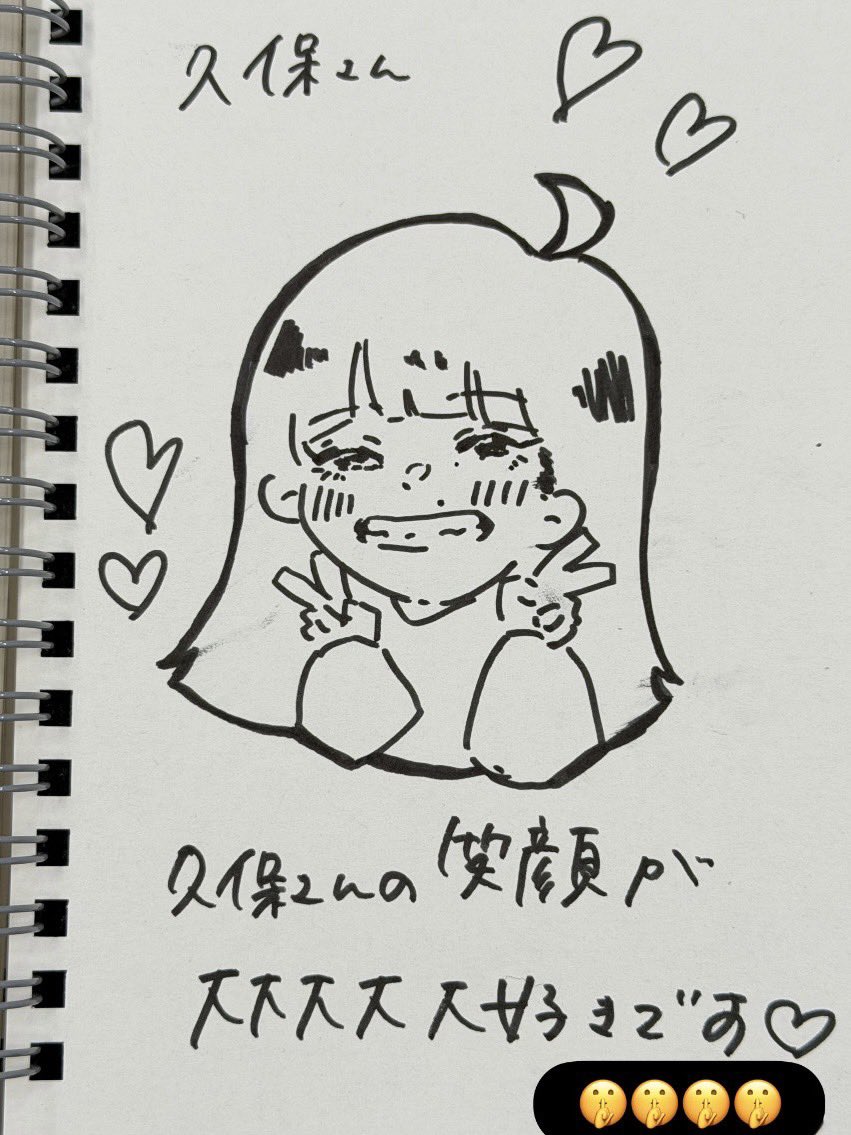 久保さん
久保さんの笑顔が
大大大大大好きです♡
🤫🤫🤫🤫